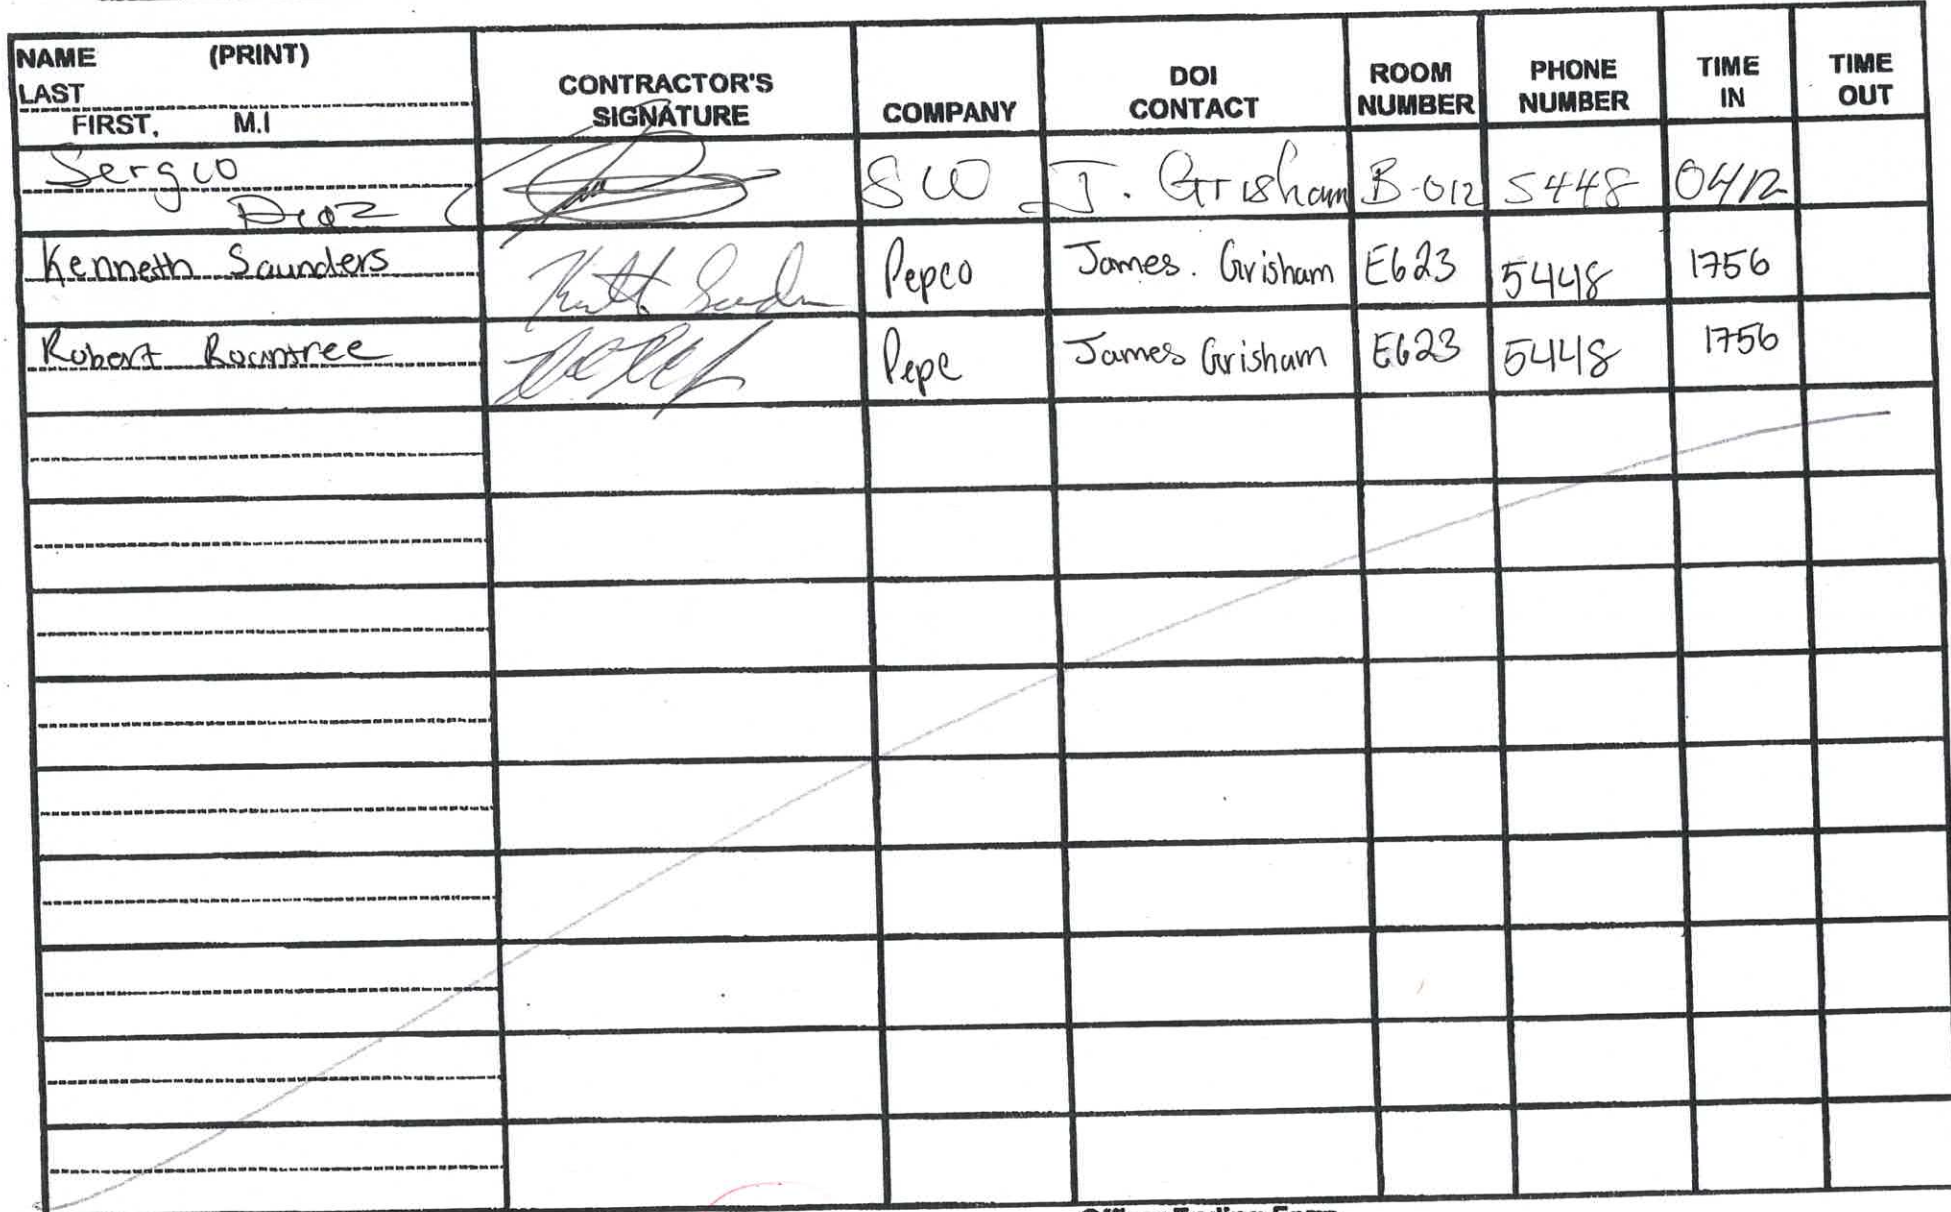 NAME (PRINT)
LAST
FIRST, M.I
CONTRACTOR'S
SIGNATURE
COMPANY
DOI
CONTACT
ROOM
NUMBER
PHONE
NUMBER
TIME
IN
TIME
OUT
Sergio
Diaz
SW J. Grisham B-012 5448 0412
Kenneth Saunders Pepco James. Grisham E623 5448 1756
Robert Rountree Pepc James Grisham E623 5448 1756